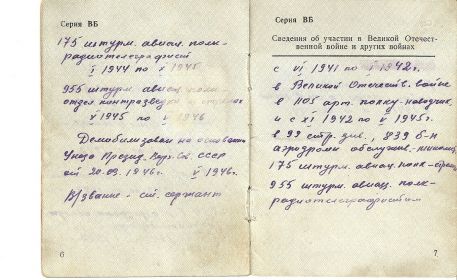 Серия ВБ
175 штурм. авиац. полк-
радиотелеграфист
I 1944 по V 1945
955 штурм. авиац. полк-
отдел контрразведки
V 1945 по V 1946
Демобилизован на основании
Указа Презид. Верх. Сов СССР
от 20.03.1946г. V 1946г.
В/звание - ст. сержант
6
Серия ВБ
Сведения об участии в Великой Отечест-
венной войне и других войнах
с VI 1941 по V 1942г.
в Великой Отечеств. войне
в 1105 арт. полку-наводчик
и с XI 1942 по V 1945г.
в 99 стр. див., 839 б-н
аэродромн. обслужив.
175 штурм. авиац. полк-стрелок
955 штурм. авиац. полк-
радиотелеграфистом
7